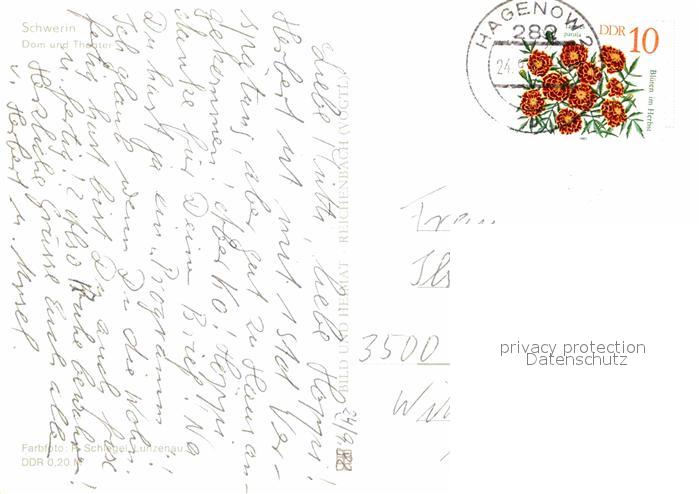 Schwerin
Dom und Theater
Liebe Mutti, liebe Hoppi!
Herbert ist mit 1 Std Ver-
spätung, aber gut zu Hause an-
gekommen, after Ko!
Danke für Deine Brief! Na
Du hast ja ein Programm!
Ich glaub wenn Du die Wohn.
fertig hast bist Du auch fix
u. fertig! Also Ruhe bewahren!
Herzliche Grüsse Euch allen
v. Herbert u.
24/9.
BILD UND HEIMAT · REICHENBACH (VOGTL)
Farbfoto: Schlegel, Lunzenau
DDR 0,20 M
HAGENOW 2
282
24.
DDR 10
Blüten im Herbst
Frau
Ils
3500
Wi
privacy protection
Datenschutz